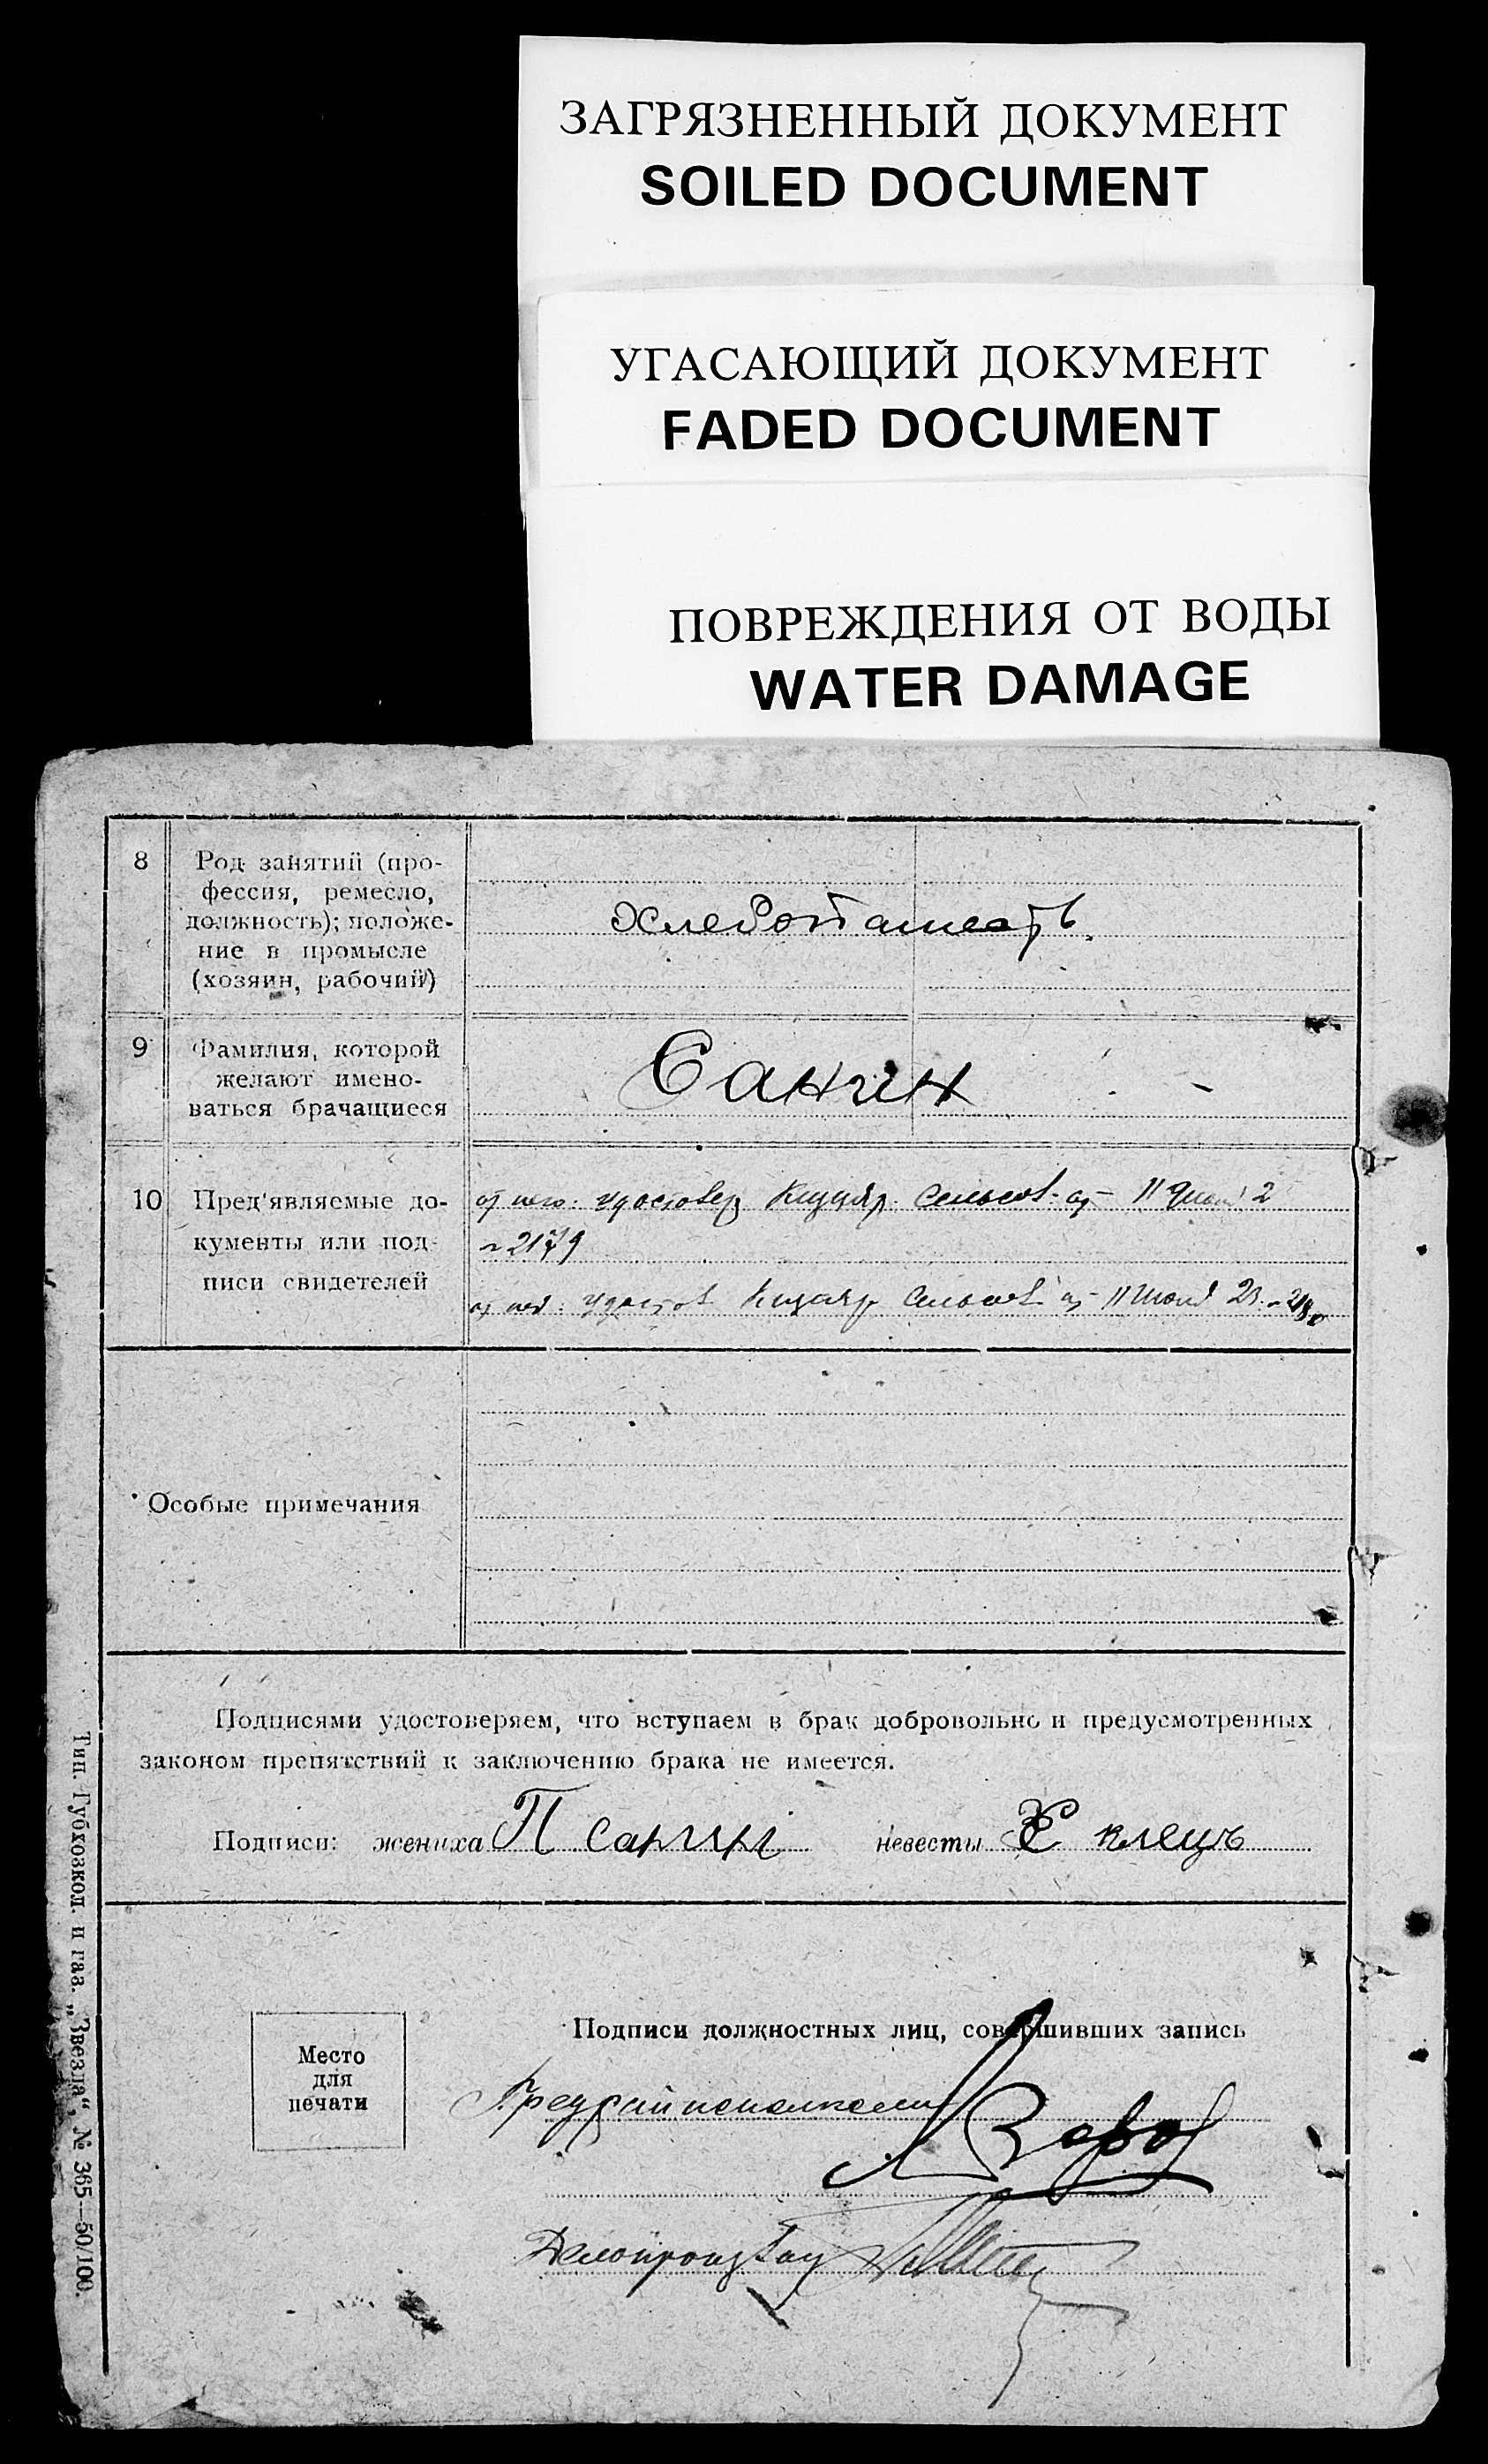 ЗАГРЯЗНЕННЫЙ ДОКУМЕНТ
SOILED DOCUMENT
УГАСАЮЩИЙ ДОКУМЕНТ
FADED DOCUMENT
ПОВРЕЖДЕНИЯ ОТ ВОДЫ
WATER DAMAGE
8 Род занятий (про-
фессия, ремесло,
должность); положе-
ние в промысле
(хозяин, рабочий)
Хлебопашест.
9 Фамилия, которой
желают имено-
ваться брачащиеся
Санин -
10 Пред'являемые до-
кументы или под-
писи свидетелей
от него: удостовер Сельсов. от 11
от нея: удостов Сельсов от 11 Июля 23.
Особые примечания
Подписями удостоверяем, что вступаем в брак добровольно и предусмотренных
законом препятствий к заключению брака не имеется.
Подписи: жениха П Санин невесты
Место
для
печати
Подписи должностных лиц, совершивших запись
Предрайисполкома
Делопроизвод
Тип. Губхозкол. и газ. „Звезда“, № 365—50/100.